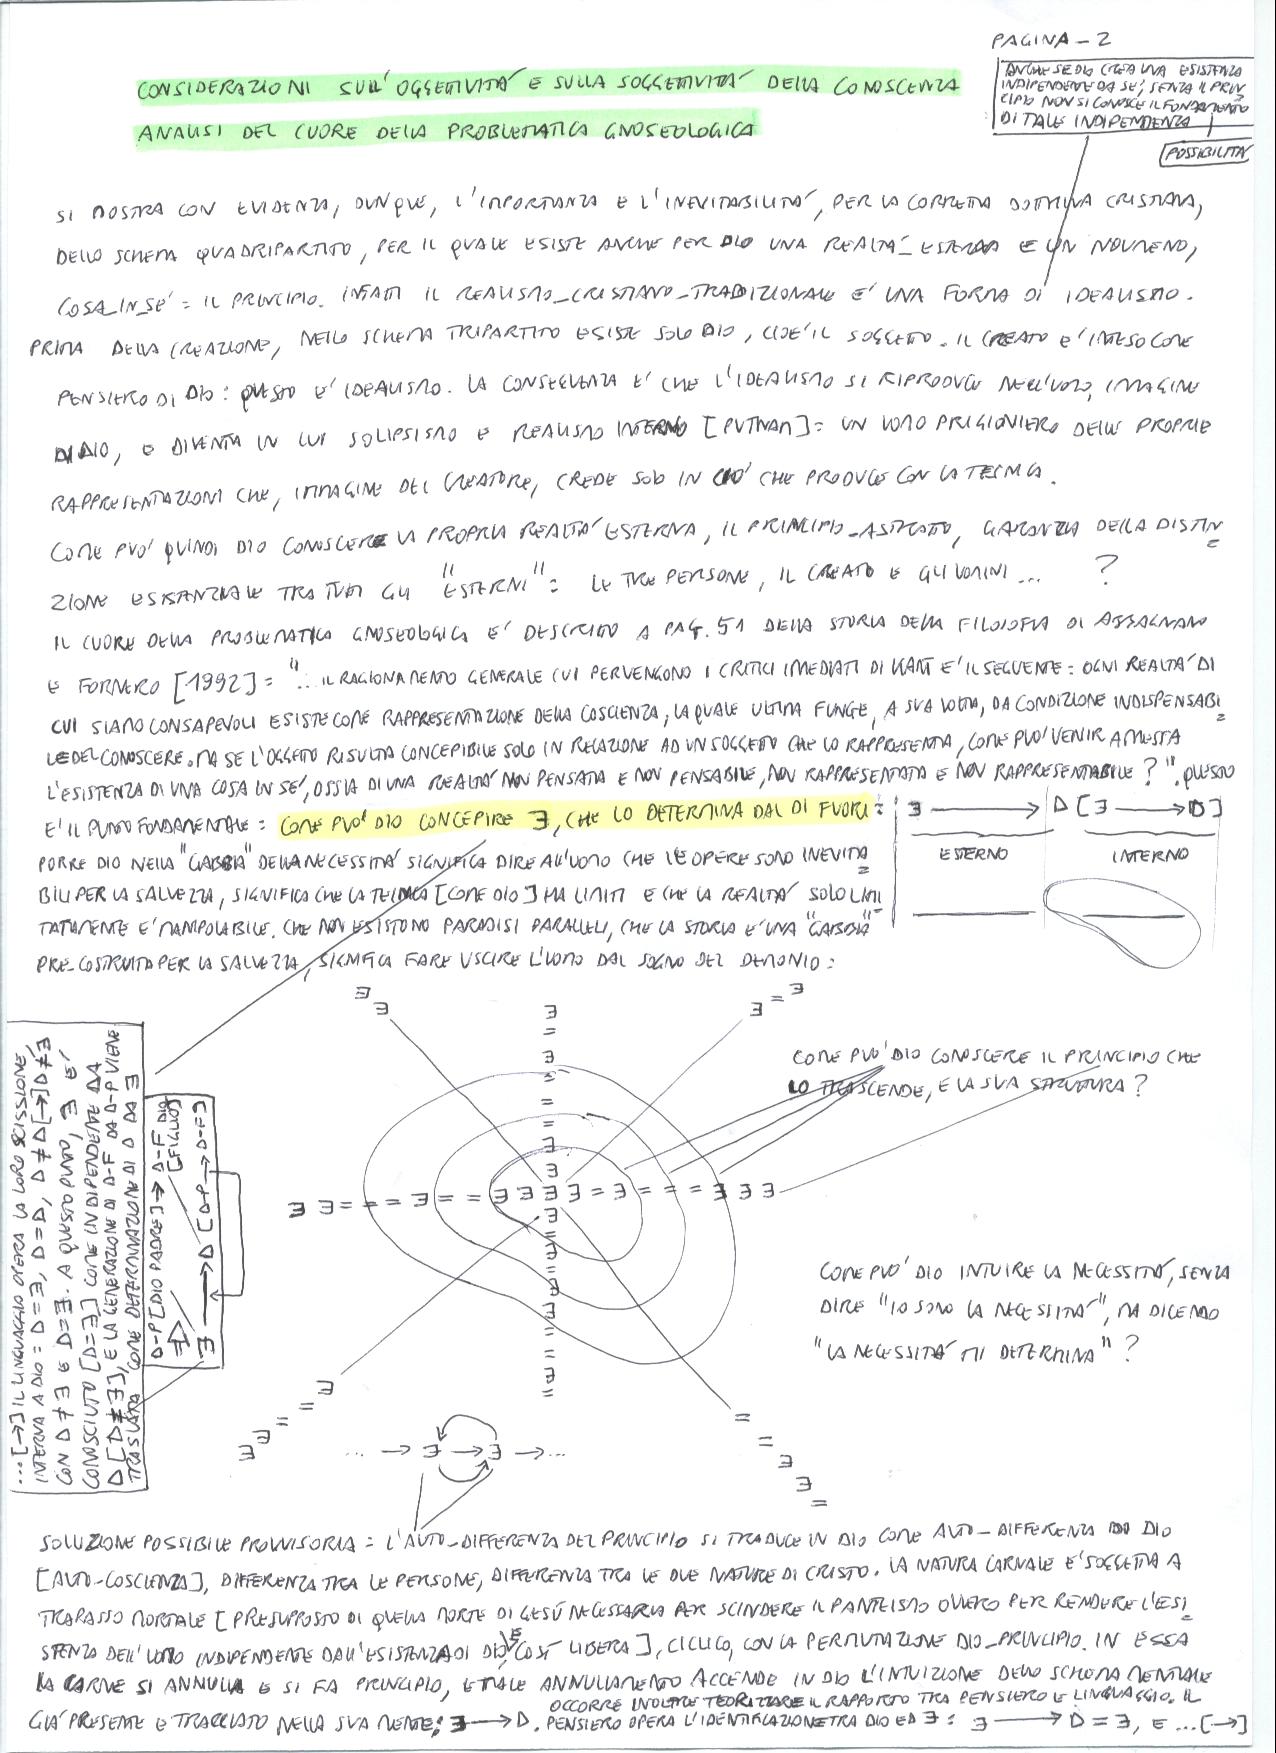 PAGINA - 2
CONSIDERAZIONI SULL'OGGETTIVITÁ E SULLA SOGGETTIVITÁ DELLA CONOSCENZA
ANALISI DEL CUORE DELLA PROBLEMATICA GNOSEOLOGICA
ANCHE SE DIO CREA UNA ESISTENZA
INDIPENDENTE DA SE', SENZA IL PRIN
CIPIO NON SI CONOSCE IL FONDAMENTO
DI TALE INDIPENDENZA
POSSIBILITA'
SI MOSTRA CON EVIDENZA, DUNQUE, L'IMPORTANZA E L'INEVITABILITÁ, PER LA CORRETTA DOTTRINA CRISTIANA,
DELLO SCHEMA QUADRIPARTITO, PER IL QUALE ESISTE ANCHE PER DIO UNA REALTÁ_ESTERNA E UN NOUMENO,
COSA_IN_SE' = IL PRINCIPIO. INFATTI IL REALISMO_CRISTIANO_TRADIZIONALE E' UNA FORMA DI IDEALISMO.
PRIMA DELLA CREAZIONE, NELLO SCHEMA TRIPARTITO ESISTE SOLO DIO, CIOE' IL SOGGETTO. IL CREATO E' INTESO COME
PENSIERO DI DIO: QUESTO E' IDEALISMO. LA CONSEGUENZA E' CHE L'IDEALISMO SI RIPRODUCE NELL'UOMO, IMMAGINE
DI DIO, E DIVENTA IN LUI SOLIPSISMO E REALISMO INTERNO [PUTNAM] = UN UOMO PRIGIONIERO DELLE PROPRIE
RAPPRESENTAZIONI CHE, IMMAGINE DEL CREATORE, CREDE SOLO IN CIO' CHE PRODUCE CON LA TECNICA.
COME PUO' QUINDI DIO CONOSCERE LA PROPRIA REALTÁ ESTERNA, IL PRINCIPIO_ASTRATTO, GARANZIA DELLA DISTIN
ZIONE ESISTENZIALE TRA TUTTI GLI "ESTERNI" = LE TRE PERSONE, IL CREATO E GLI UOMINI ... ?
IL CUORE DELLA PROBLEMATICA GNOSEOLOGICA E' DESCRITTO A PAG. 51 DELLA STORIA DELLA FILOSOFIA DI ABBAGNANO
E FORNERO [1992] = "... IL RAGIONAMENTO GENERALE CUI PERVENGONO I CRITICI IMMEDIATI DI KANT E' IL SEGUENTE: OGNI REALTÁ DI
CUI SIAMO CONSAPEVOLI ESISTE COME RAPPRESENTAZIONE DELLA COSCIENZA, LA QUALE ULTIMA FUNGE, A SUA VOLTA, DA CONDIZIONE INDISPENSABI
LE DEL CONOSCERE. MA SE L'OGGETTO RISULTA CONCEPIBILE SOLO IN RELAZIONE AD UN SOGGETTO CHE LO RAPPRESENTA, COME PUO' VENIR AMMESSA
L'ESISTENZA DI UNA COSA IN SE', OSSIA DI UNA REALTÁ NON PENSATA E NON PENSABILE, NON RAPPRESENTATA E NON RAPPRESENTABILE ? ". QUESTO
E' IL PUNTO FONDAMENTALE = COME PUO' DIO CONCEPIRE ∃, CHE LO DETERMINA DAL DI FUORI:
PORRE DIO NELLA "GABBIA" DELLA NECESSITÁ SIGNIFICA DIRE ALL'UOMO CHE LE OPERE SONO INEVITA
BILI PER LA SALVEZZA, SIGNIFICA CHE LA TECNICA [COME DIO] HA LIMITI E CHE LA REALTÁ SOLO LIMI
TATAMENTE E' MANIPOLABILE. CHE NON ESISTONO PARADISI PARALLELI, CHE LA STORIA E' UNA "GABBIA"
PRE-COSTRUITA PER LA SALVEZZA, SIGNIFICA FARE USCIRE L'UOMO DAL SOGNO DEL DEMONIO:
∃ → D [∃ → D]
ESTERNO INTERNO
∃ ∃
∃ = ∃
∃ = ∃ = = ∃ ∃
COME PUO' DIO CONOSCERE IL PRINCIPIO CHE
LO TRASCENDE, E LA SUA STRUTTURA?
∃ ∃ = = = ∃ = = ∃ ∃ ∃ ∃ = ∃ = = = ∃ ∃ ∃
COME PUO' DIO INTUIRE LA NECESSITÁ, SENZA
DIRE "IO SONO LA NECESSITÁ", MA DICENDO
"LA NECESSITÁ MI DETERMINA" ?
∃ ∃ = = ∃
= = ∃ ∃ ∃ =
... → ∃ → ∃ → ...
... [→] IL LINGUAGGIO OPERA LA LORO SCISSIONE,
INTERNA A DIO: D=∃, D=D, D≠D[→]D≠∃
CON D≠∃ E D=∃. A QUESTO PUNTO, ∃ E'
CONOSCIUTO [D=∃] COME INDIPENDENTE DA
D [D≠∃], E LA GENERAZIONE DI D-F DA D-P VIENE
TRASLATA COME DETERMINAZIONE DI D DA ∃
D-P [DIO PADRE] → D-F [DIO FIGLIO]
∃ → D [D-P → D-F]
SOLUZIONE POSSIBILE PROVVISORIA = L'AUTO-DIFFERENZA DEL PRINCIPIO SI TRADUCE IN DIO COME AUTO-DIFFERENZA DI DIO
[AUTO-COSCIENZA], DIFFERENZA TRA LE PERSONE, DIFFERENZA TRA LE DUE NATURE DI CRISTO. LA NATURA CARNALE E' SOGGETTA A
TRAPASSO MORTALE [PRESUPPOSTO DI QUELLA MORTE DI GESÚ NECESSARIA PER SCINDERE IL PANTEISMO OVVERO PER RENDERE L'ESI
STENZA DELL'UOMO INDIPENDENTE DALL'ESISTENZA DI DIO, E COSÍ LIBERA], CICLICO, CON LA PERMUTAZIONE DIO_PRINCIPIO. IN ESSA
LA CARNE SI ANNULLA E SI FA PRINCIPIO, E TALE ANNULLAMENTO ACCENDE IN DIO L'INTUIZIONE DELLO SCHEMA MENTALE
GIA' PRESENTE E TRACCIATO NELLA SUA MENTE: ∃ → D. OCCORRE INOLTRE TEORIZZARE IL RAPPORTO TRA PENSIERO E LINGUAGGIO. IL
PENSIERO OPERA L'IDENTIFICAZIONE TRA DIO ED ∃ : ∃ → D = ∃, E ... [→]